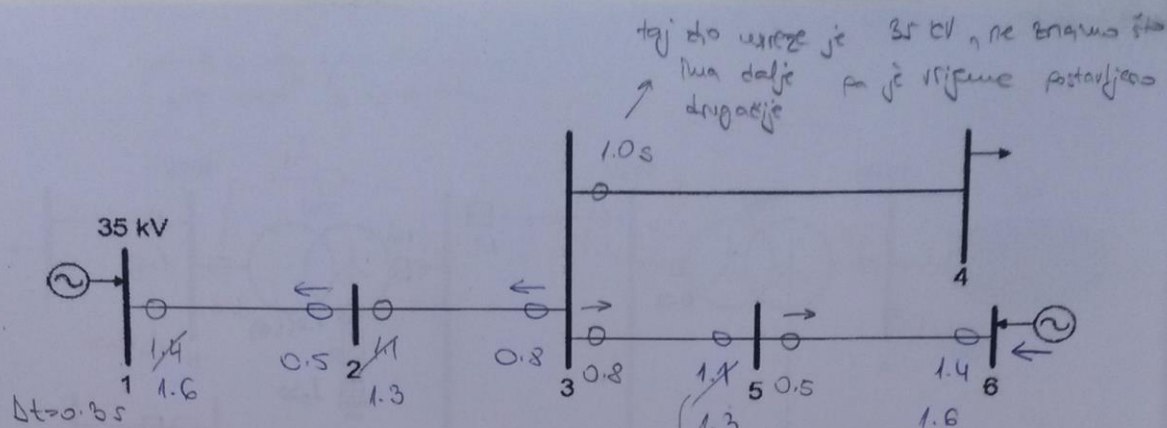 taj dio mreže je 35 kV, ne znamo što
ima dalje pa je vrijeme postavljeno
drugačije
1.0s
35 kV
4
1.4
0.5
2
1.1
0.8
3
0.8
1.1
5
0.5
1.4
6
1
1.6
1.3
1.3
1.6
Δt=0.3s